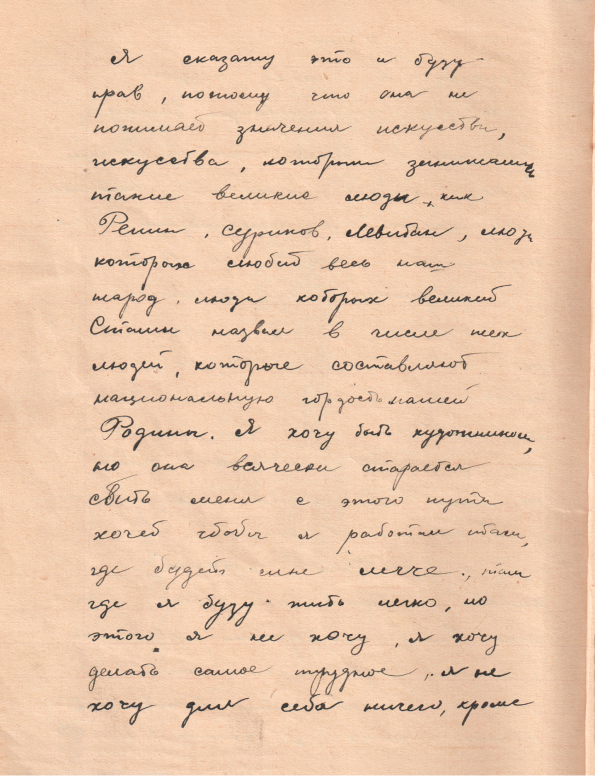 Я скажу это и буду
прав, потому что она не
понимает значения искусства,
искусства, которым занимались
такие великие люди, как
Репин, Суриков, Левитан, люди
которых любит весь наш
народ, люди которых великий
Сталин назвал в числе тех
людей, которые составляют
национальную гордость нашей
Родины. Я хочу быть художником,
но она всячески старается
сбить меня с этого пути
хочет чтобы я работал там,
где будет мне легче, там
где я буду жить легко, но
этого я не хочу, я хочу
делать самое трудное, я не
хочу для себя ничего, кроме